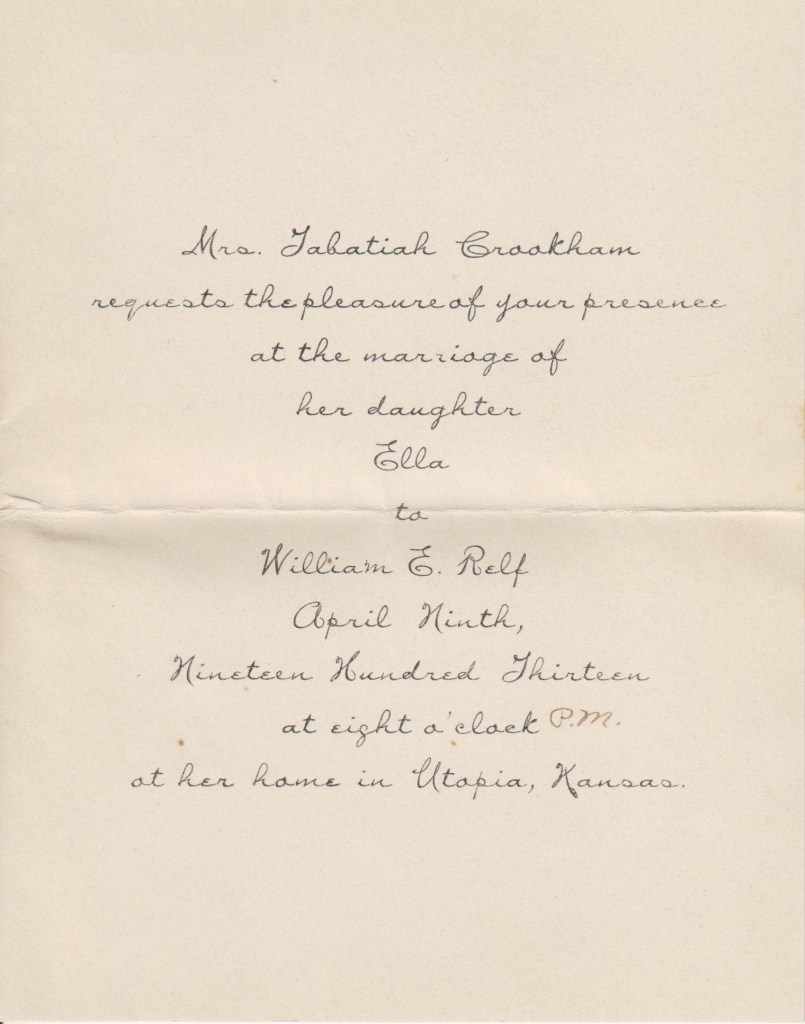 Mrs. Tabatiah Crookham
requests the pleasure of your presence
at the marriage of
her daughter
Ella
to
William E. Relf
April Ninth,
Nineteen Hundred Thirteen
at eight o'clock P.M.
at her home in Utopia, Kansas.